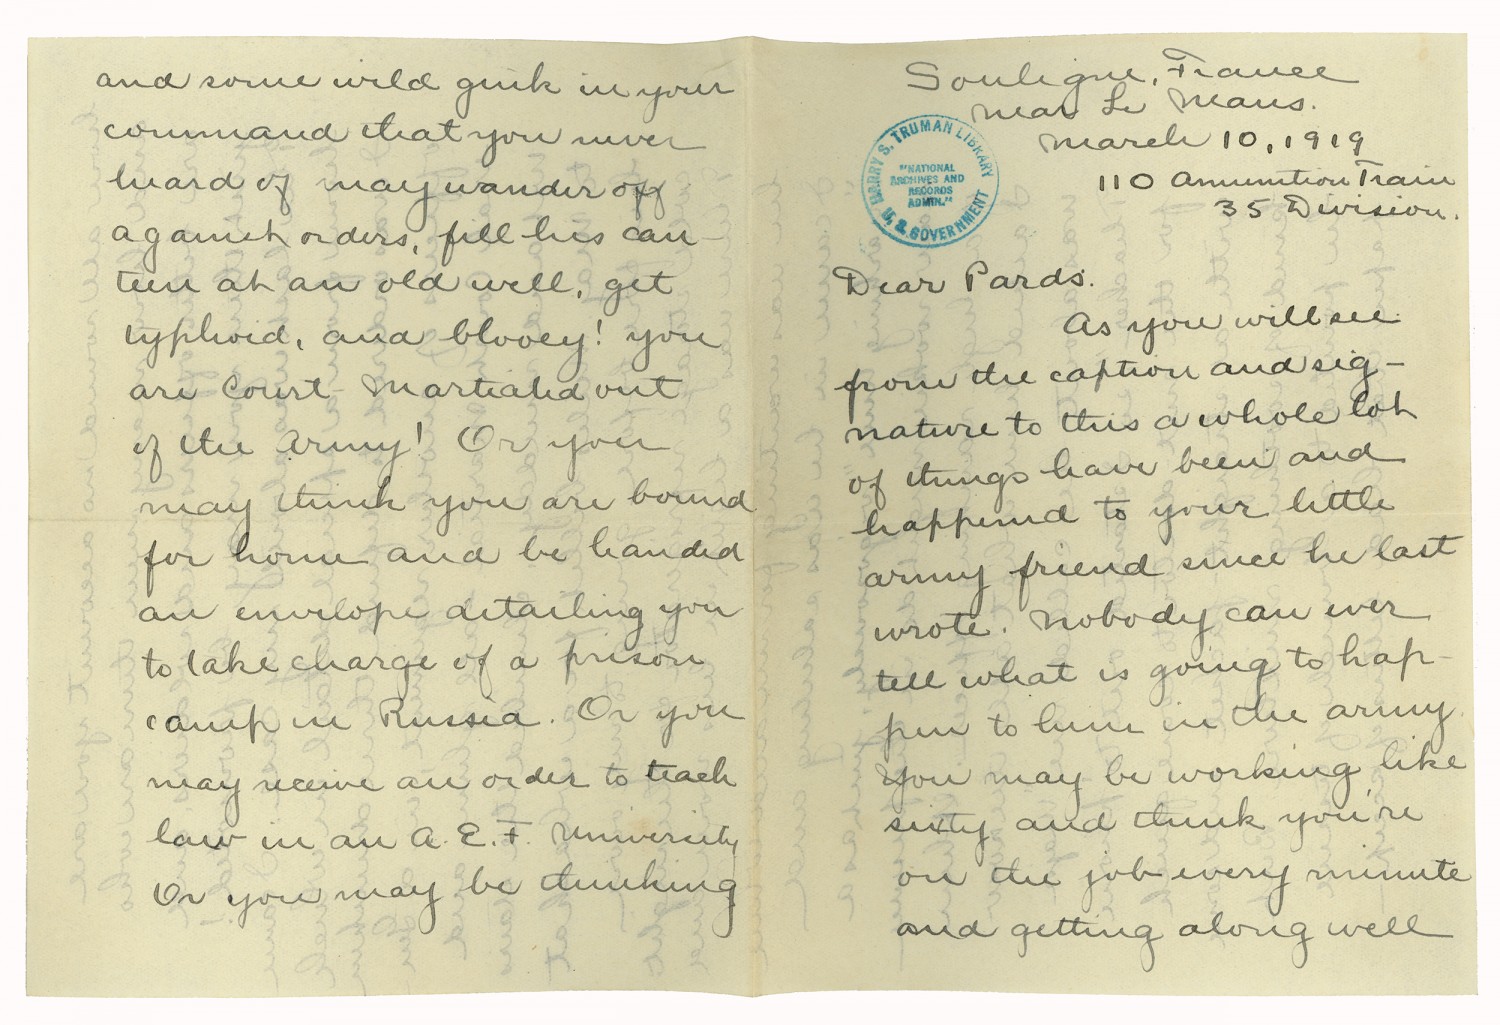 Souligne, France
near Le Mans.
March 10, 1919
110 Ammunition Train
35 Division.
HARRY S. TRUMAN LIBRARY
"NATIONAL
ARCHIVES AND
RECORDS
ADMIN."
U. S. GOVERNMENT
Dear Pards.
As you will see
from the caption and sig-
nature to this a whole lot
of things have been and
happened to your little
army friend since he last
wrote. Nobody can ever
tell what is going to hap-
pen to him in the army.
You may be working like
sixty and think you're
on the job every minute
and getting along well
and some wild gink in your
command that you never
heard of may wander off
against orders, fill his can-
teen at an old well, get
typhoid, and blooey! you
are Court-Martialed out
of the Army! Or you
may think you are bound
for home and be handed
an envelope detailing you
to take charge of a prison
camp in Russia. Or you
may receive an order to teach
law in an A.E.F. University
Or you may be thinking